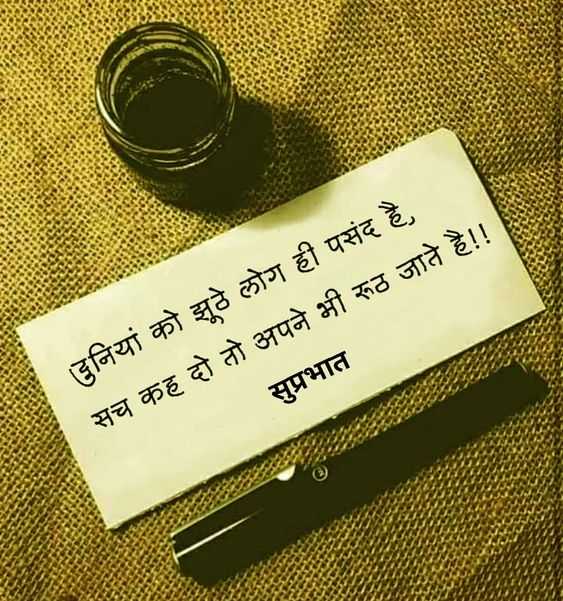 दुनियां को झूठे लोग ही पसंद है,
सच कह दो तो अपने भी रूठ जाते है!!
सुप्रभात